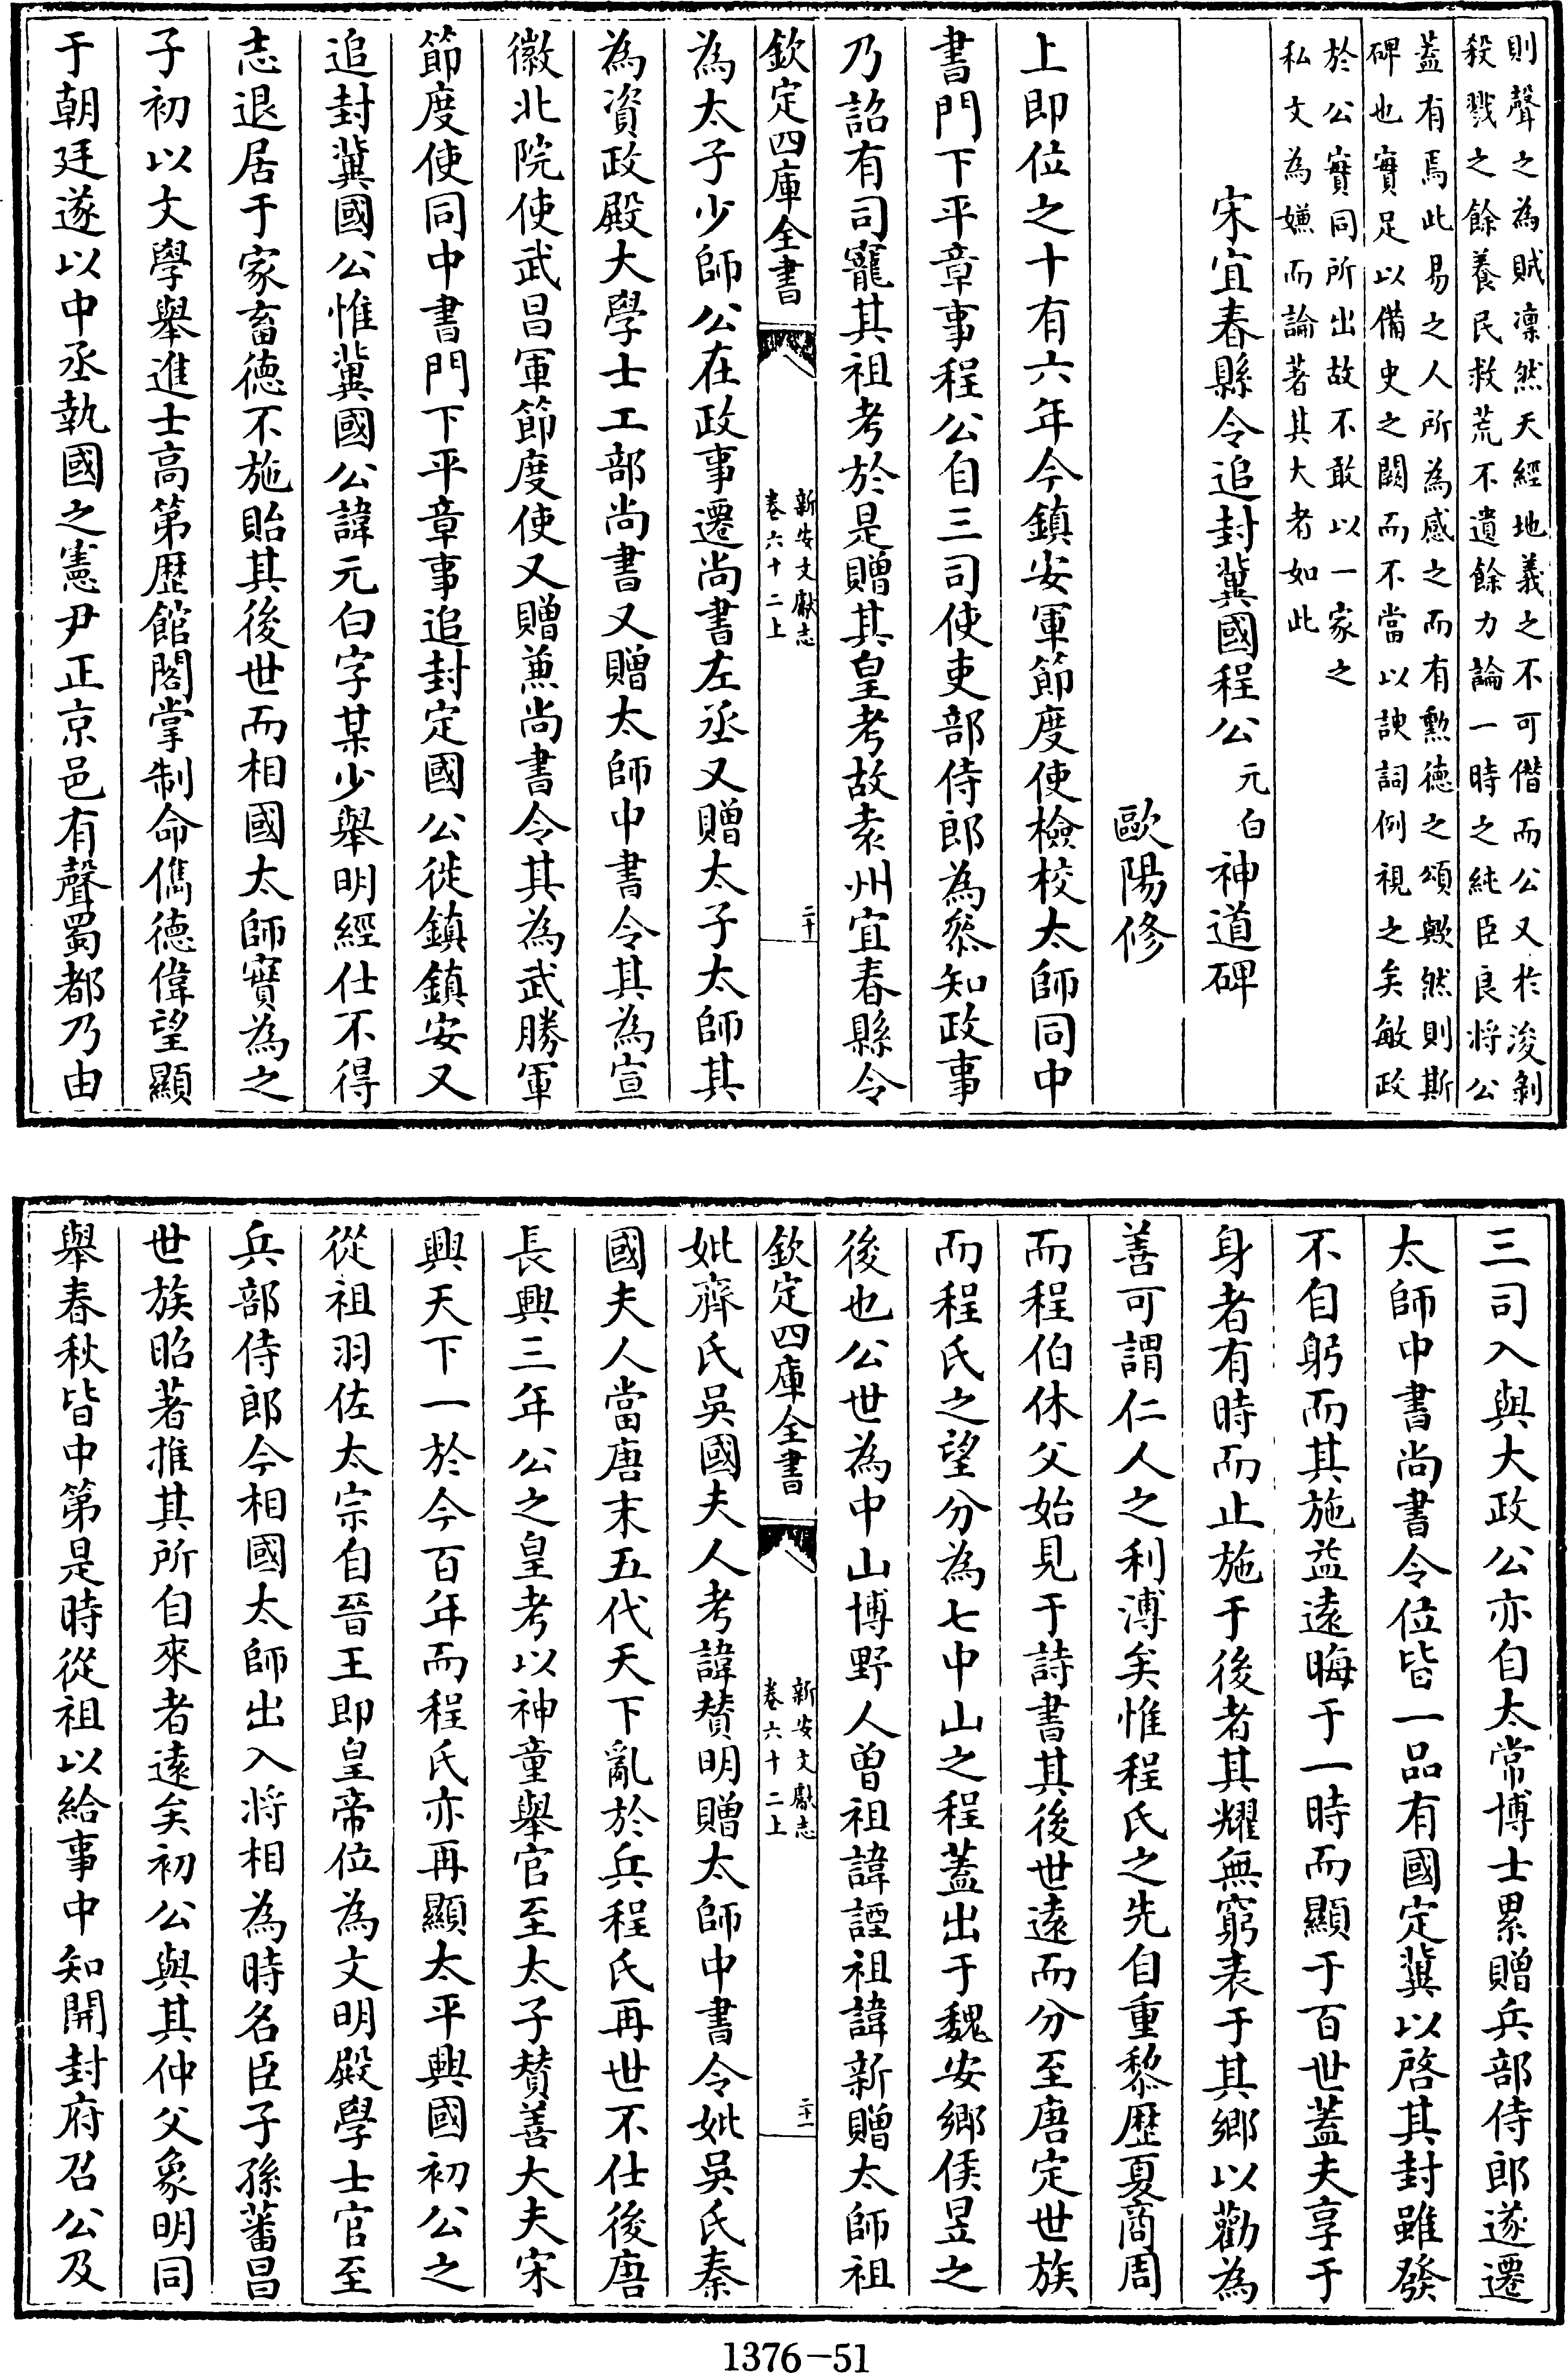 則聲之為賊凛然天經地義之不可僭而公又扵浚剝
殺戮之餘養民救荒不遺餘力論一時之純臣良將公
蓋有焉此易之人所為感之而有勲徳之頌歟然則斯
碑也實足以備史之闕而不當以諛詞例視之矣敏政
於公實同所出故不敢以一家之
私文為嫌而論著其大者如此
宋宜春縣令追封冀國程公元白神道碑
歐陽修
上即位之十有六年今鎮安軍節度使檢校太師同中
書門下平章事程公自三司使吏部侍郎為叅知政事
乃詔有司寵其祖考於是贈其皇考故袁州宜春縣令
欽定四庫全書
新安文獻志
卷六十二上
二十
為太子少師公在政事遷尚書左丞又贈太子太師其
為資政殿大學士工部尚書又贈太師中書令其為宣
徽北院使武昌軍節度使又贈兼尚書令其為武勝軍
節度使同中書門下平章事追封定國公徙鎮鎮安又
追封冀國公惟冀國公諱元白字某少舉明經仕不得
志退居于家畜徳不施貽其後世而相國太師實為之
子初以文學舉進士高第歴館閣掌制命儁德偉望顯
于朝廷遂以中丞執國之憲尹正京邑有聲蜀都乃由
三司入與大政公亦自太常博士累贈兵部侍郎遂遷
太師中書尚書令位皆一品有國定冀以啓其封雖發
不自躬而其施益遠晦于一時而顯于百世蓋夫享于
身者有時而止施于後者其耀無窮表于其鄉以勸為
善可謂仁人之利溥矣惟程氏之先自重黎歴夏商周
而程伯休父始見于詩書其後世遠而分至唐定世族
而程氏之望分為七中山之程蓋出于魏安鄉侯昱之
後也公世為中山博野人曾祖諱諲祖諱新贈太師祖
欽定四庫全書
新安文獻志
卷六十二上
二十一
妣齊氏吳國夫人考諱賛明贈太師中書令妣吳氏秦
國夫人當唐末五代天下亂於兵程氏再世不仕後唐
長興三年公之皇考以神童舉官至太子賛善大夫宋
興天下一於今百年而程氏亦再顯太平興國初公之
從祖羽佐太宗自晉王即皇帝位為文明殿學士官至
兵部侍郎今相國太師出入將相為時名臣子孫蕃昌
世族昭著推其所自來者遠矣初公與其仲父象明同
舉春秋皆中第是時從祖以給事中知開封府召公及
1376-51